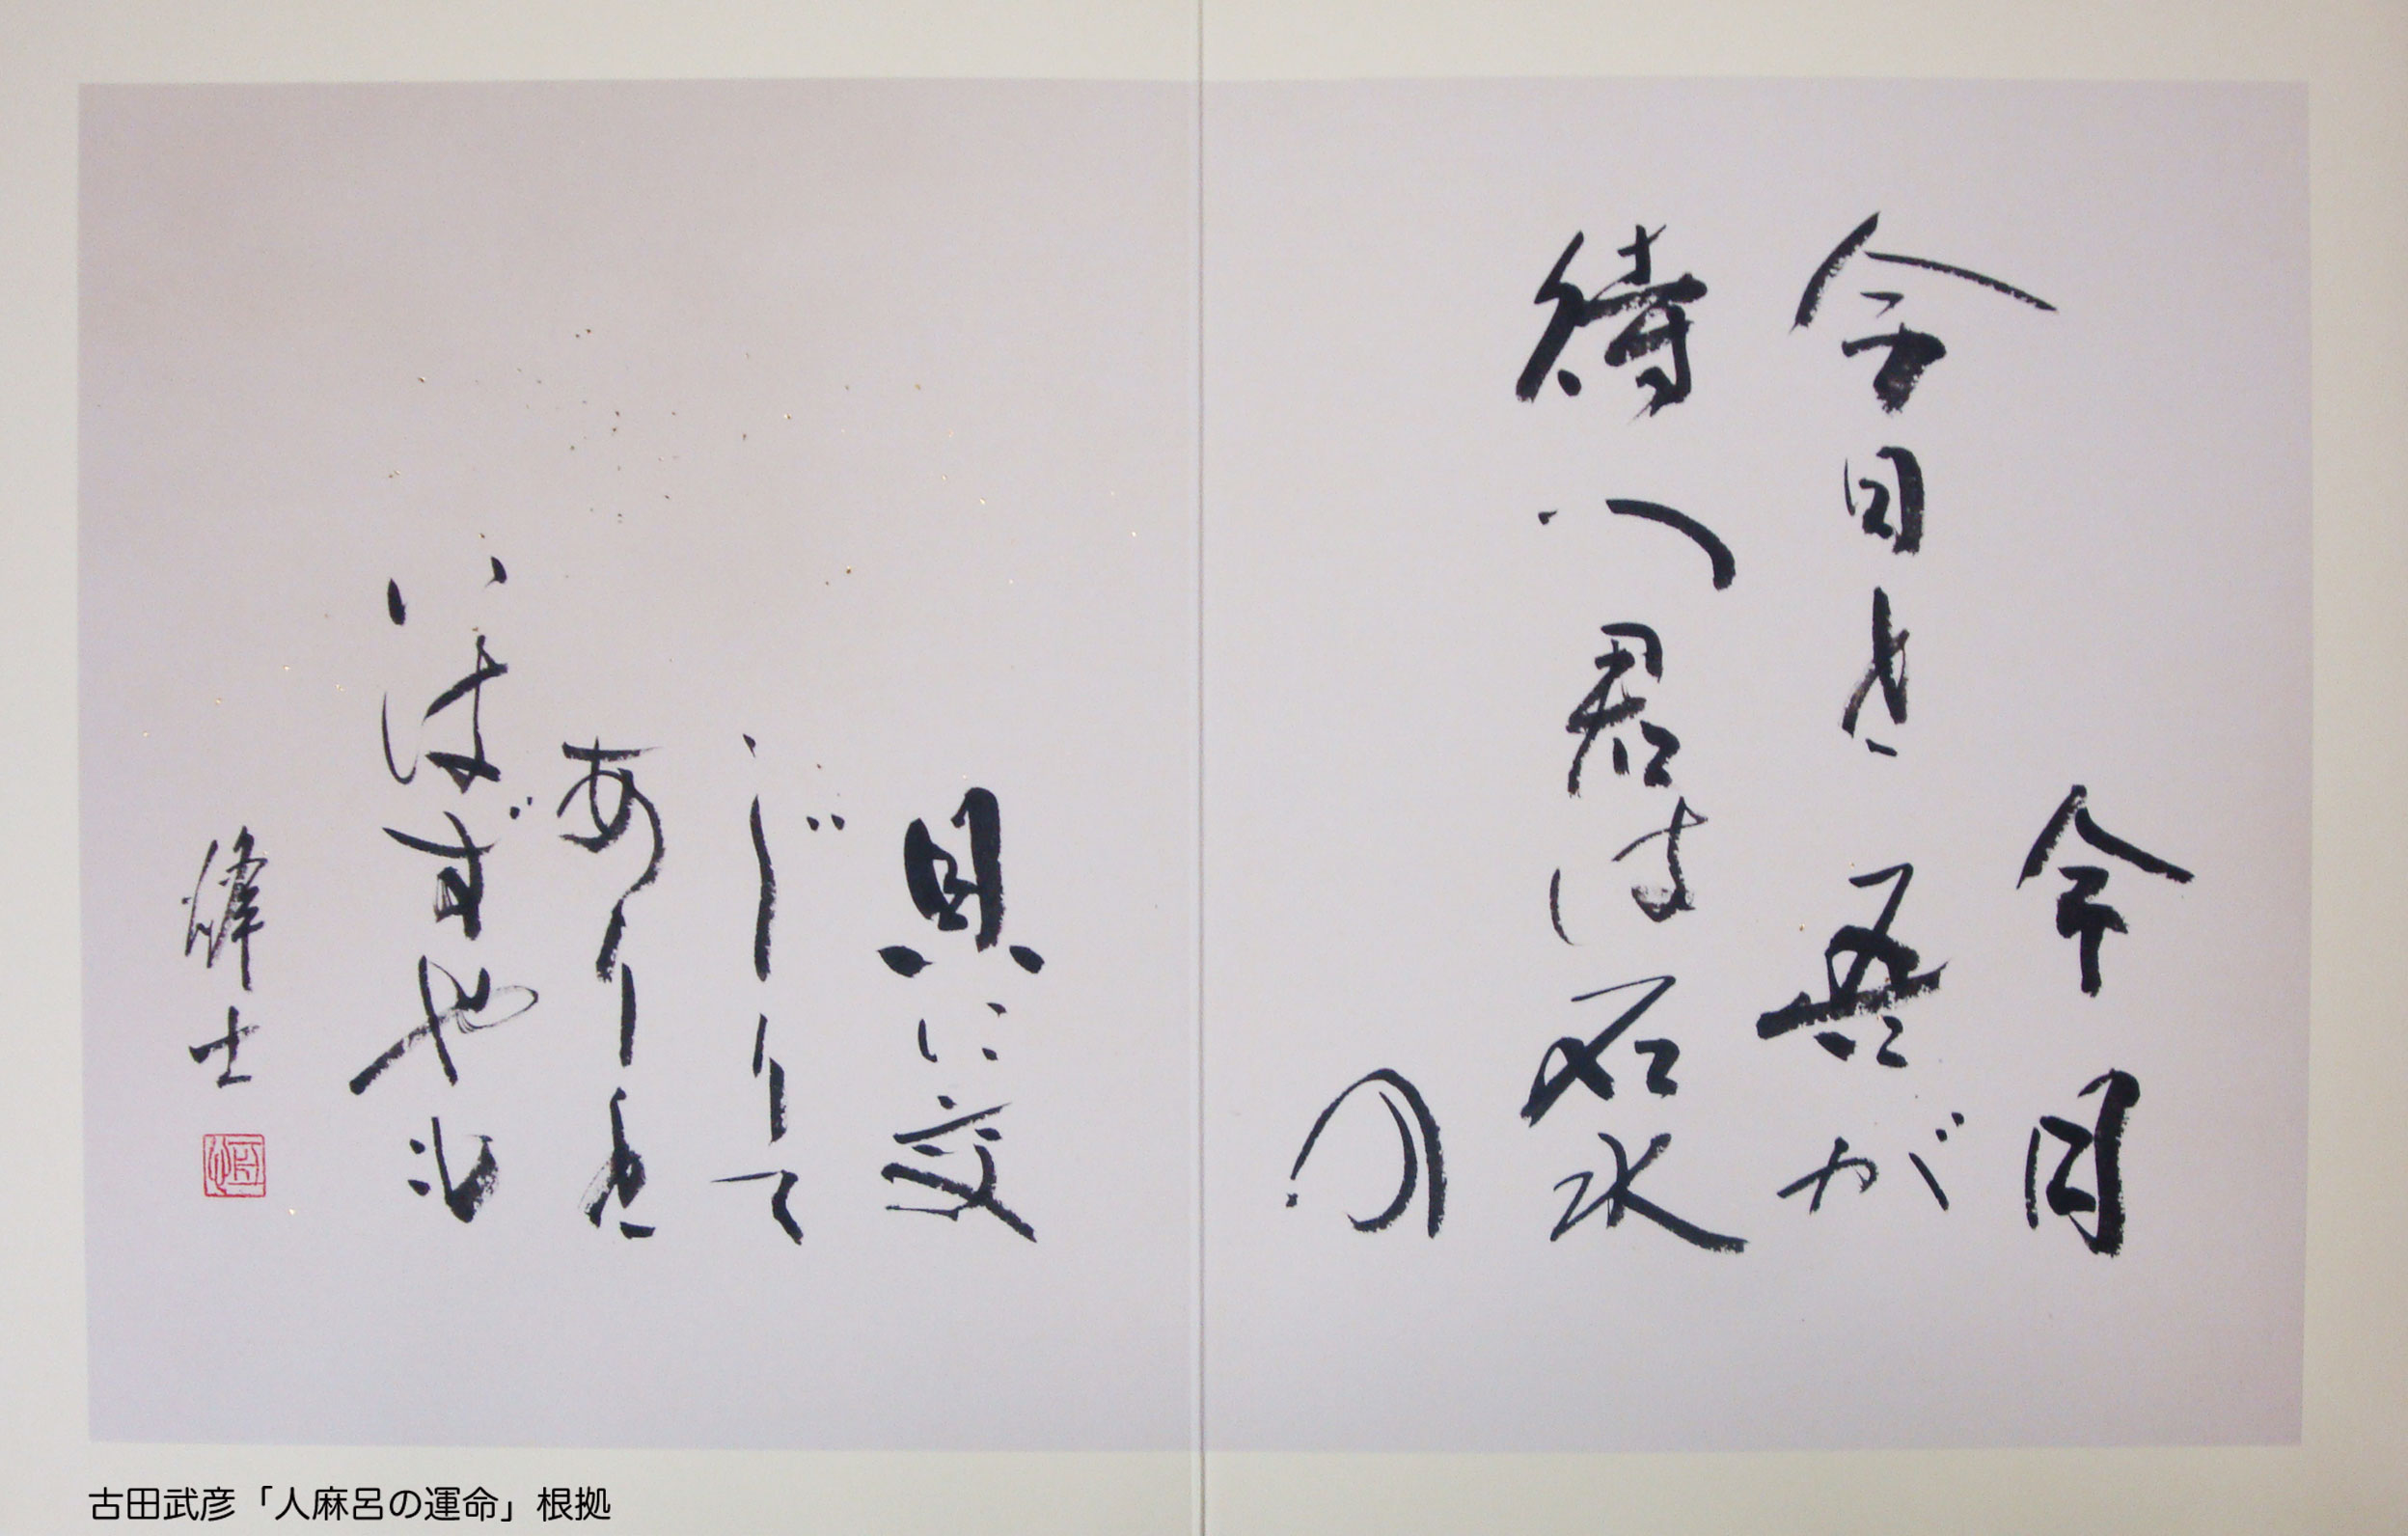 今日
今日と吾が
待つ君は石水
の
貝に交
じりて
ありと
いはずやも
古田武彦「人麻呂の運命」根拠